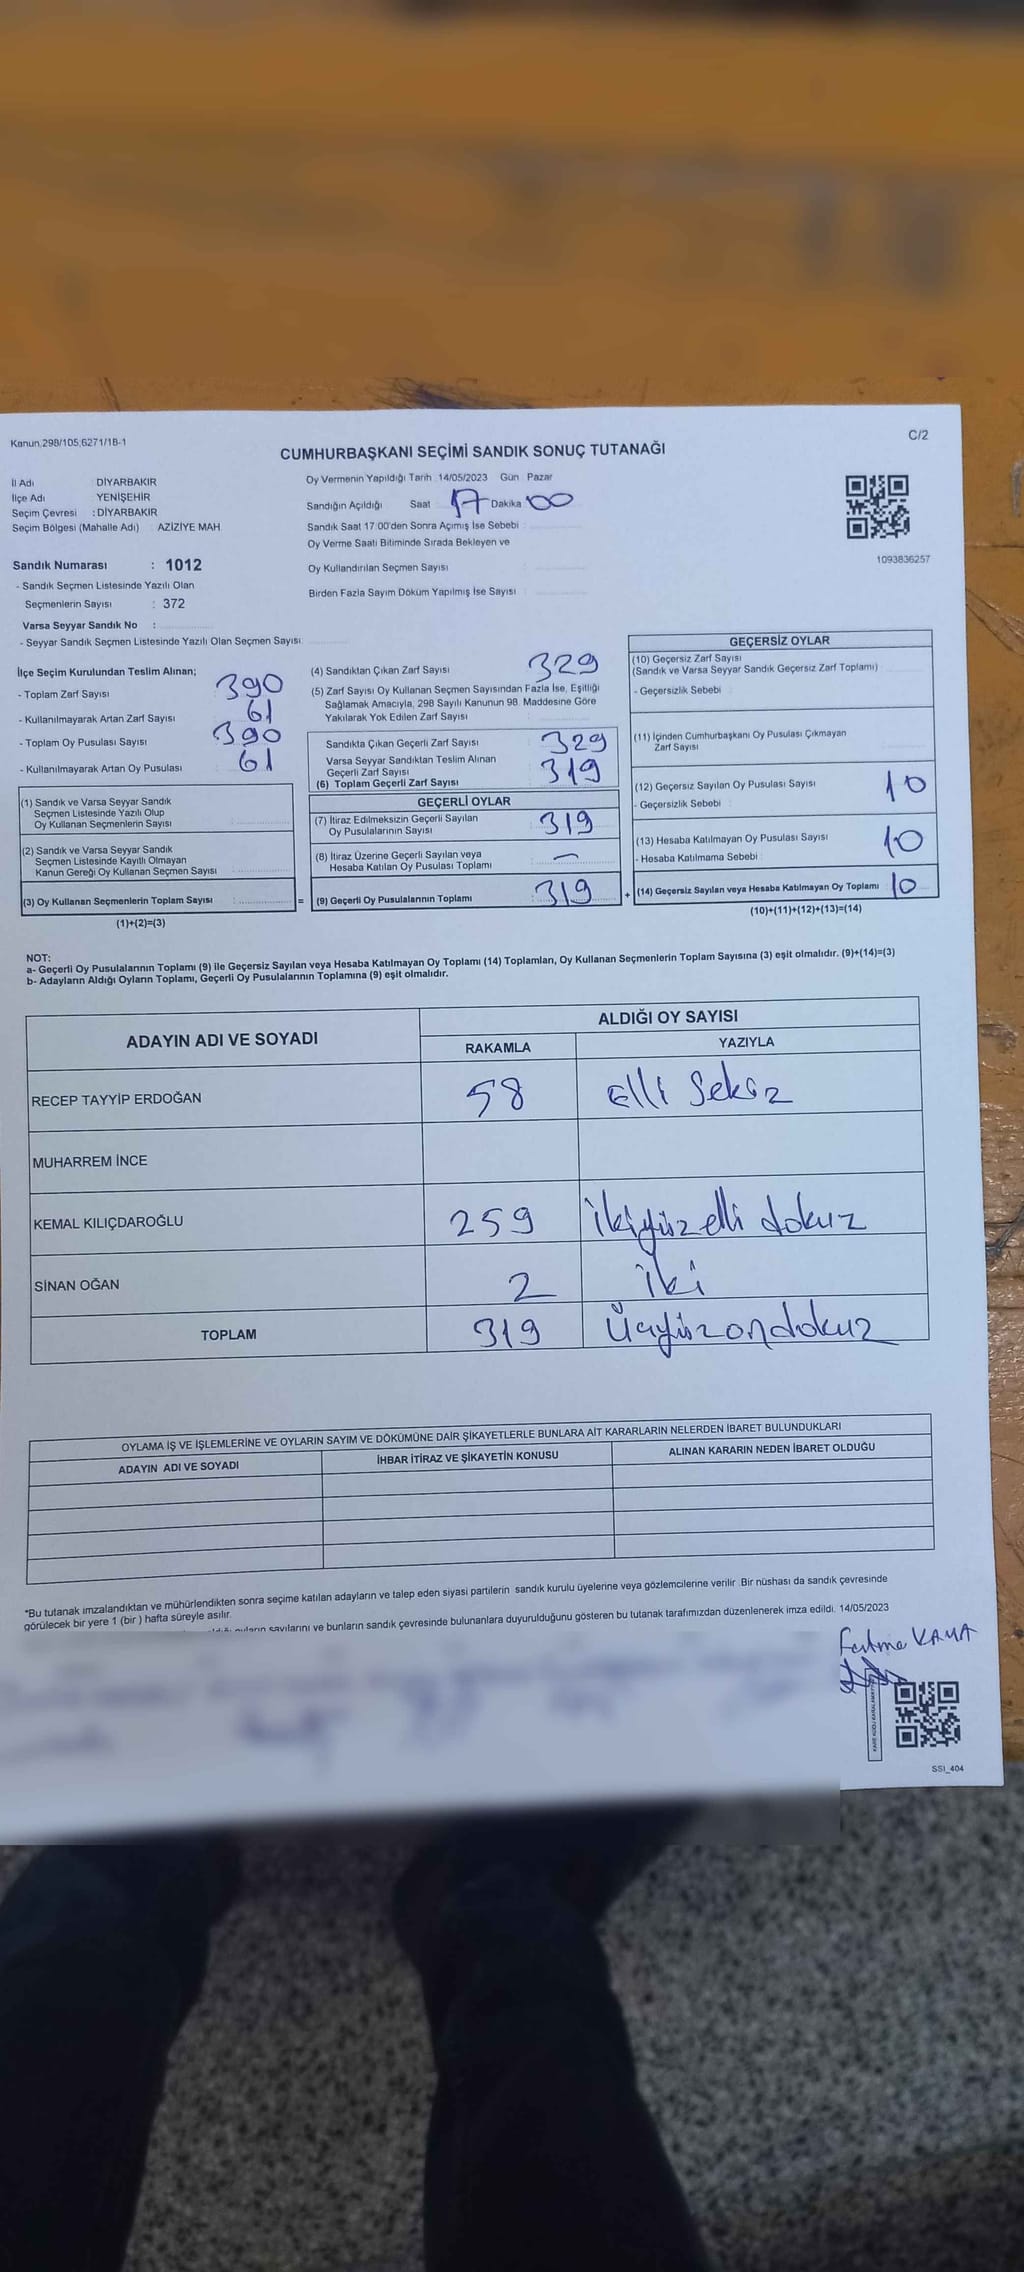 Kanun.298/105,6271/18-1
C/2
CUMHURBAŞKANI SEÇİMİ SANDIK SONUÇ TUTANAĞI
İl Adı : DİYARBAKIR
İlçe Adı : YENİŞEHİR
Seçim Çevresi : DİYARBAKIR
Seçim Bölgesi (Mahalle Adı) : AZİZİYE MAH.
Sandık Numarası : 1012
- Sandık Seçmen Listesinde Yazılı Olan
Seçmenlerin Sayısı : 372
Varsa Seyyar Sandık No :
- Seyyar Sandık Seçmen Listesinde Yazılı Olan Seçmen Sayısı:
Oy Vermenin Yapıldığı Tarih : 14/05/2023 Gün : Pazar
Sandığın Açıldığı Saat 17 Dakika 00
Sandık Saat 17:00'den Sonra Açımış İse Sebebi :
Oy Verme Saati Bitiminde Sırada Bekleyen ve
Oy Kullandırılan Seçmen Sayısı :
Birden Fazla Sayım Döküm Yapılmış İse Sayısı :
1093836257
İlçe Seçim Kurulundan Teslim Alınan;
- Toplam Zarf Sayısı 390
- Kullanılmayarak Artan Zarf Sayısı 61
- Toplam Oy Pusulası Sayısı 390
- Kullanılmayarak Artan Oy Pusulası 61
(1) Sandık ve Varsa Seyyar Sandık
Seçmen Listesinde Yazılı Olup
Oy Kullanan Seçmenlerin Sayısı
(2) Sandık ve Varsa Seyyar Sandık
Seçmen Listesinde Kayıtlı Olmayan
Kanun Gereği Oy Kullanan Seçmen Sayısı
(3) Oy Kullanan Seçmenlerin Toplam Sayısı :
(1)+(2)=(3)
(4) Sandıktan Çıkan Zarf Sayısı 329
(5) Zarf Sayısı Oy Kullanan Seçmen Sayısından Fazla İse, Eşitliği
Sağlamak Amacıyla, 298 Sayılı Kanunun 98. Maddesine Göre
Yakılarak Yok Edilen Zarf Sayısı
Sandıkta Çıkan Geçerli Zarf Sayısı 329
Varsa Seyyar Sandıktan Teslim Alınan
Geçerli Zarf Sayısı
(6) Toplam Geçerli Zarf Sayısı 319
GEÇERLİ OYLAR
(7) İtiraz Edilmeksizin Geçerli Sayılan
Oy Pusulalarının Sayısı : 319
(8) İtiraz Üzerine Geçerli Sayılan veya
Hesaba Katılan Oy Pusulası Toplamı : —
= (9) Geçerli Oy Pusulalarının Toplamı : 319
GEÇERSİZ OYLAR
(10) Geçersiz Zarf Sayısı
(Sandık ve Varsa Seyyar Sandık Geçersiz Zarf Toplamı)
- Geçersizlik Sebebi :
(11) İçinden Cumhurbaşkanı Oy Pusulası Çıkmayan
Zarf Sayısı
(12) Geçersiz Sayılan Oy Pusulası Sayısı 10
- Geçersizlik Sebebi :
(13) Hesaba Katılmayan Oy Pusulası Sayısı 10
- Hesaba Katılmama Sebebi :
+ (14) Geçersiz Sayılan veya Hesaba Katılmayan Oy Toplamı 10
(10)+(11)+(12)+(13)=(14)
NOT:
a- Geçerli Oy Pusulalarının Toplamı (9) ile Geçersiz Sayılan veya Hesaba Katılmayan Oy Toplamı (14) Toplamları, Oy Kullanan Seçmenlerin Toplam Sayısına (3) eşit olmalıdır. (9)+(14)=(3)
b- Adayların Aldığı Oyların Toplamı, Geçerli Oy Pusulalarının Toplamına (9) eşit olmalıdır.
ADAYIN ADI VE SOYADI ALDIĞI OY SAYISI
RAKAMLA YAZIYLA
RECEP TAYYİP ERDOĞAN 58 Elli Sekiz
MUHARREM İNCE
KEMAL KILIÇDAROĞLU 259 ikiyüz elli dokuz
SİNAN OĞAN 2 iki
TOPLAM 319 Üçyüzondokuz
OYLAMA İŞ VE İŞLEMLERİNE VE OYLARIN SAYIM VE DÖKÜMÜNE DAİR ŞİKAYETLERLE BUNLARA AİT KARARLARIN NELERDEN İBARET BULUNDUKLARI
ADAYIN ADI VE SOYADI İHBAR İTİRAZ VE ŞİKAYETİN KONUSU ALINAN KARARIN NEDEN İBARET OLDUĞU
*Bu tutanak imzalandıktan ve mühürlendikten sonra seçime katılan adayların ve talep eden siyasi partilerin sandık kurulu üyelerine veya gözlemcilerine verilir. Bir nüshası da sandık çevresinde
görülecek bir yere 1 (bir) hafta süreyle asılır.
sayılarını ve bunların sandık çevresinde bulunanlara duyurulduğunu gösteren bu tutanak tarafımızdan düzenlenerek imza edildi. 14/05/2023
Fatma KAYA
SSI_404